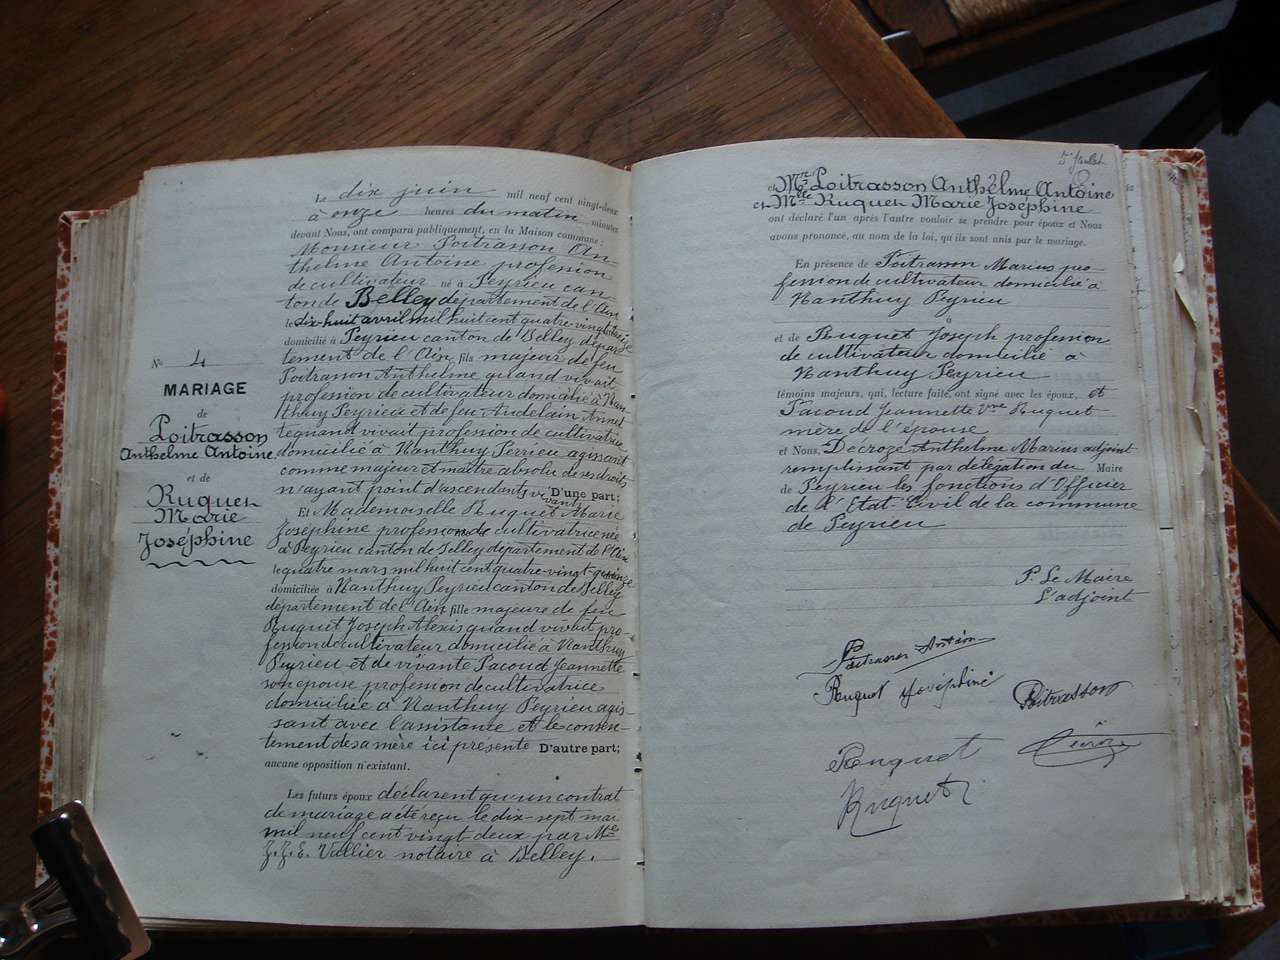 Le dix juin mil neuf cent vingt-deux
à onze heures du matin minutes
devant Nous, ont comparu publiquement, en la Maison commune:
Monsieur Poitrasson An-
thelme Antoine profession
de cultivateur né à Peyrieu can-
ton de Belley département de l'Ain
le dix-huit avril mil huit cent quatre-vingt
domicilié à Peyrieu canton de Belley dépar-
tement de l'Ain, fils majeur de feu
Poitrasson Anthelme quand vivait
profession de cultivateur domicilié à Nan-
thuy Peyrieu et de feu Andelain Annet-
te quand vivait profession de cultivatrice
domicilié à Nanthuy Perrieu agissant
comme majeur et maître absolu de ses droits
n'ayant point d'ascendants vi- D'une part;
vants
Et Mademoiselle Ruquet Marie
Joséphine profession de cultivatrice née
à Peyrieu canton de Belley département de l'Ain
le quatre mars mil huit cent quatre-vingt-quinze
domiciliée à Nanthuy Peyrieu canton de Belley
département de l'Ain fille majeure de feu
Ruquet Joseph Alexis quand vivait pro-
fession de cultivateur domicilié à Nanthuy
Peyrieu et de vivante Pacoud Jeannette
son épouse profession de cultivatrice
domiciliée à Nanthuy Peyrieu agis-
sant avec l'assistance et le consen-
tement de sa mère ici présente D'autre part;
aucune opposition n'existant.
Les futurs époux déclarent qu'un contrat
de mariage a été reçu le dix-sept mai
mil neuf cent vingt deux par Me
J. J. E. Vallier notaire à Belley.
No 4
MARIAGE
de
Poitrasson
Anthelme Antoine
et de
Ruquet
Marie
Joséphine
et Mr Poitrasson Anthêlme Antoine
et Mdlle Ruquet Marie Joséphine
ont déclaré l'un après l'autre vouloir se prendre pour époux et Nous
avons prononcé, au nom de la loi, qu'ils sont unis par le mariage.
En présence de Poitrasson Marius pro-
fession de cultivateur domicilié à
Nanthuy Peyrieu
et de Ruquet Joseph profession
de cultivateur domicilié à
Nanthuy Peyrieu
témoins majeurs, qui, lecture faite, ont signé avec les époux, et
Pacoud Jeannette Vve Ruquet
mère de l'épouse
et Nous, Décroze Anthelme Marius adjoint
remplissant par délégation du Maire
de Peyrieu les fonctions d'Officier
de l'Etat-Civil de la commune
de Peyrieu
P. Le Maire
L'adjoint
Poitrasson Antoin
Ruquet Joséphine
Poitrasson
Ruquet
Décroze
Ruquet